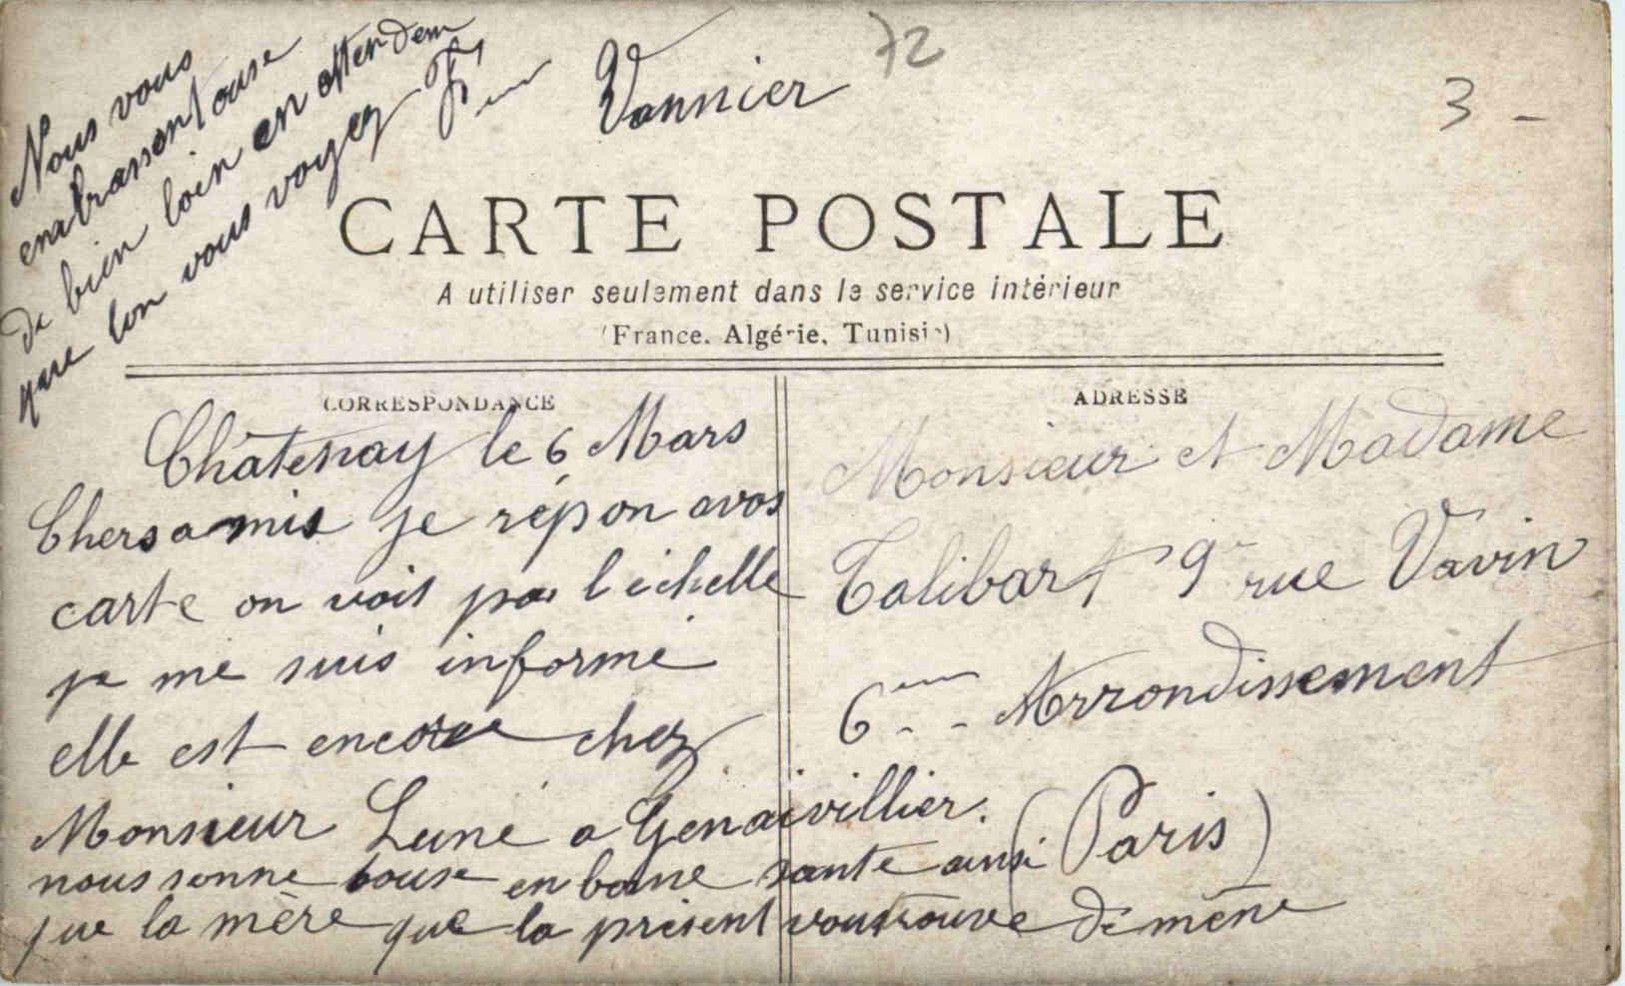 Nous vous
embrassont touse
de bien loin en attendem
que lon vous voyez
Vannier
72
3 -
CARTE POSTALE
A utiliser seulement dans le service intérieur
(France, Algérie, Tunisie)
CORRESPONDANCE
Châtenay le 6 Mars
Chers amis je répon avos
carte on voit pas l'échelle
je me suis informé
elle est encore chez
Monsieur Luné a Genaivillier.
nous sonne touse en bonne santé ainsi
que la mère que la présent vous trouve de mène
ADRESSE
Monsieur et Madame
Talibart 9 rue Vavin
6ème Arrondissement
(Paris)